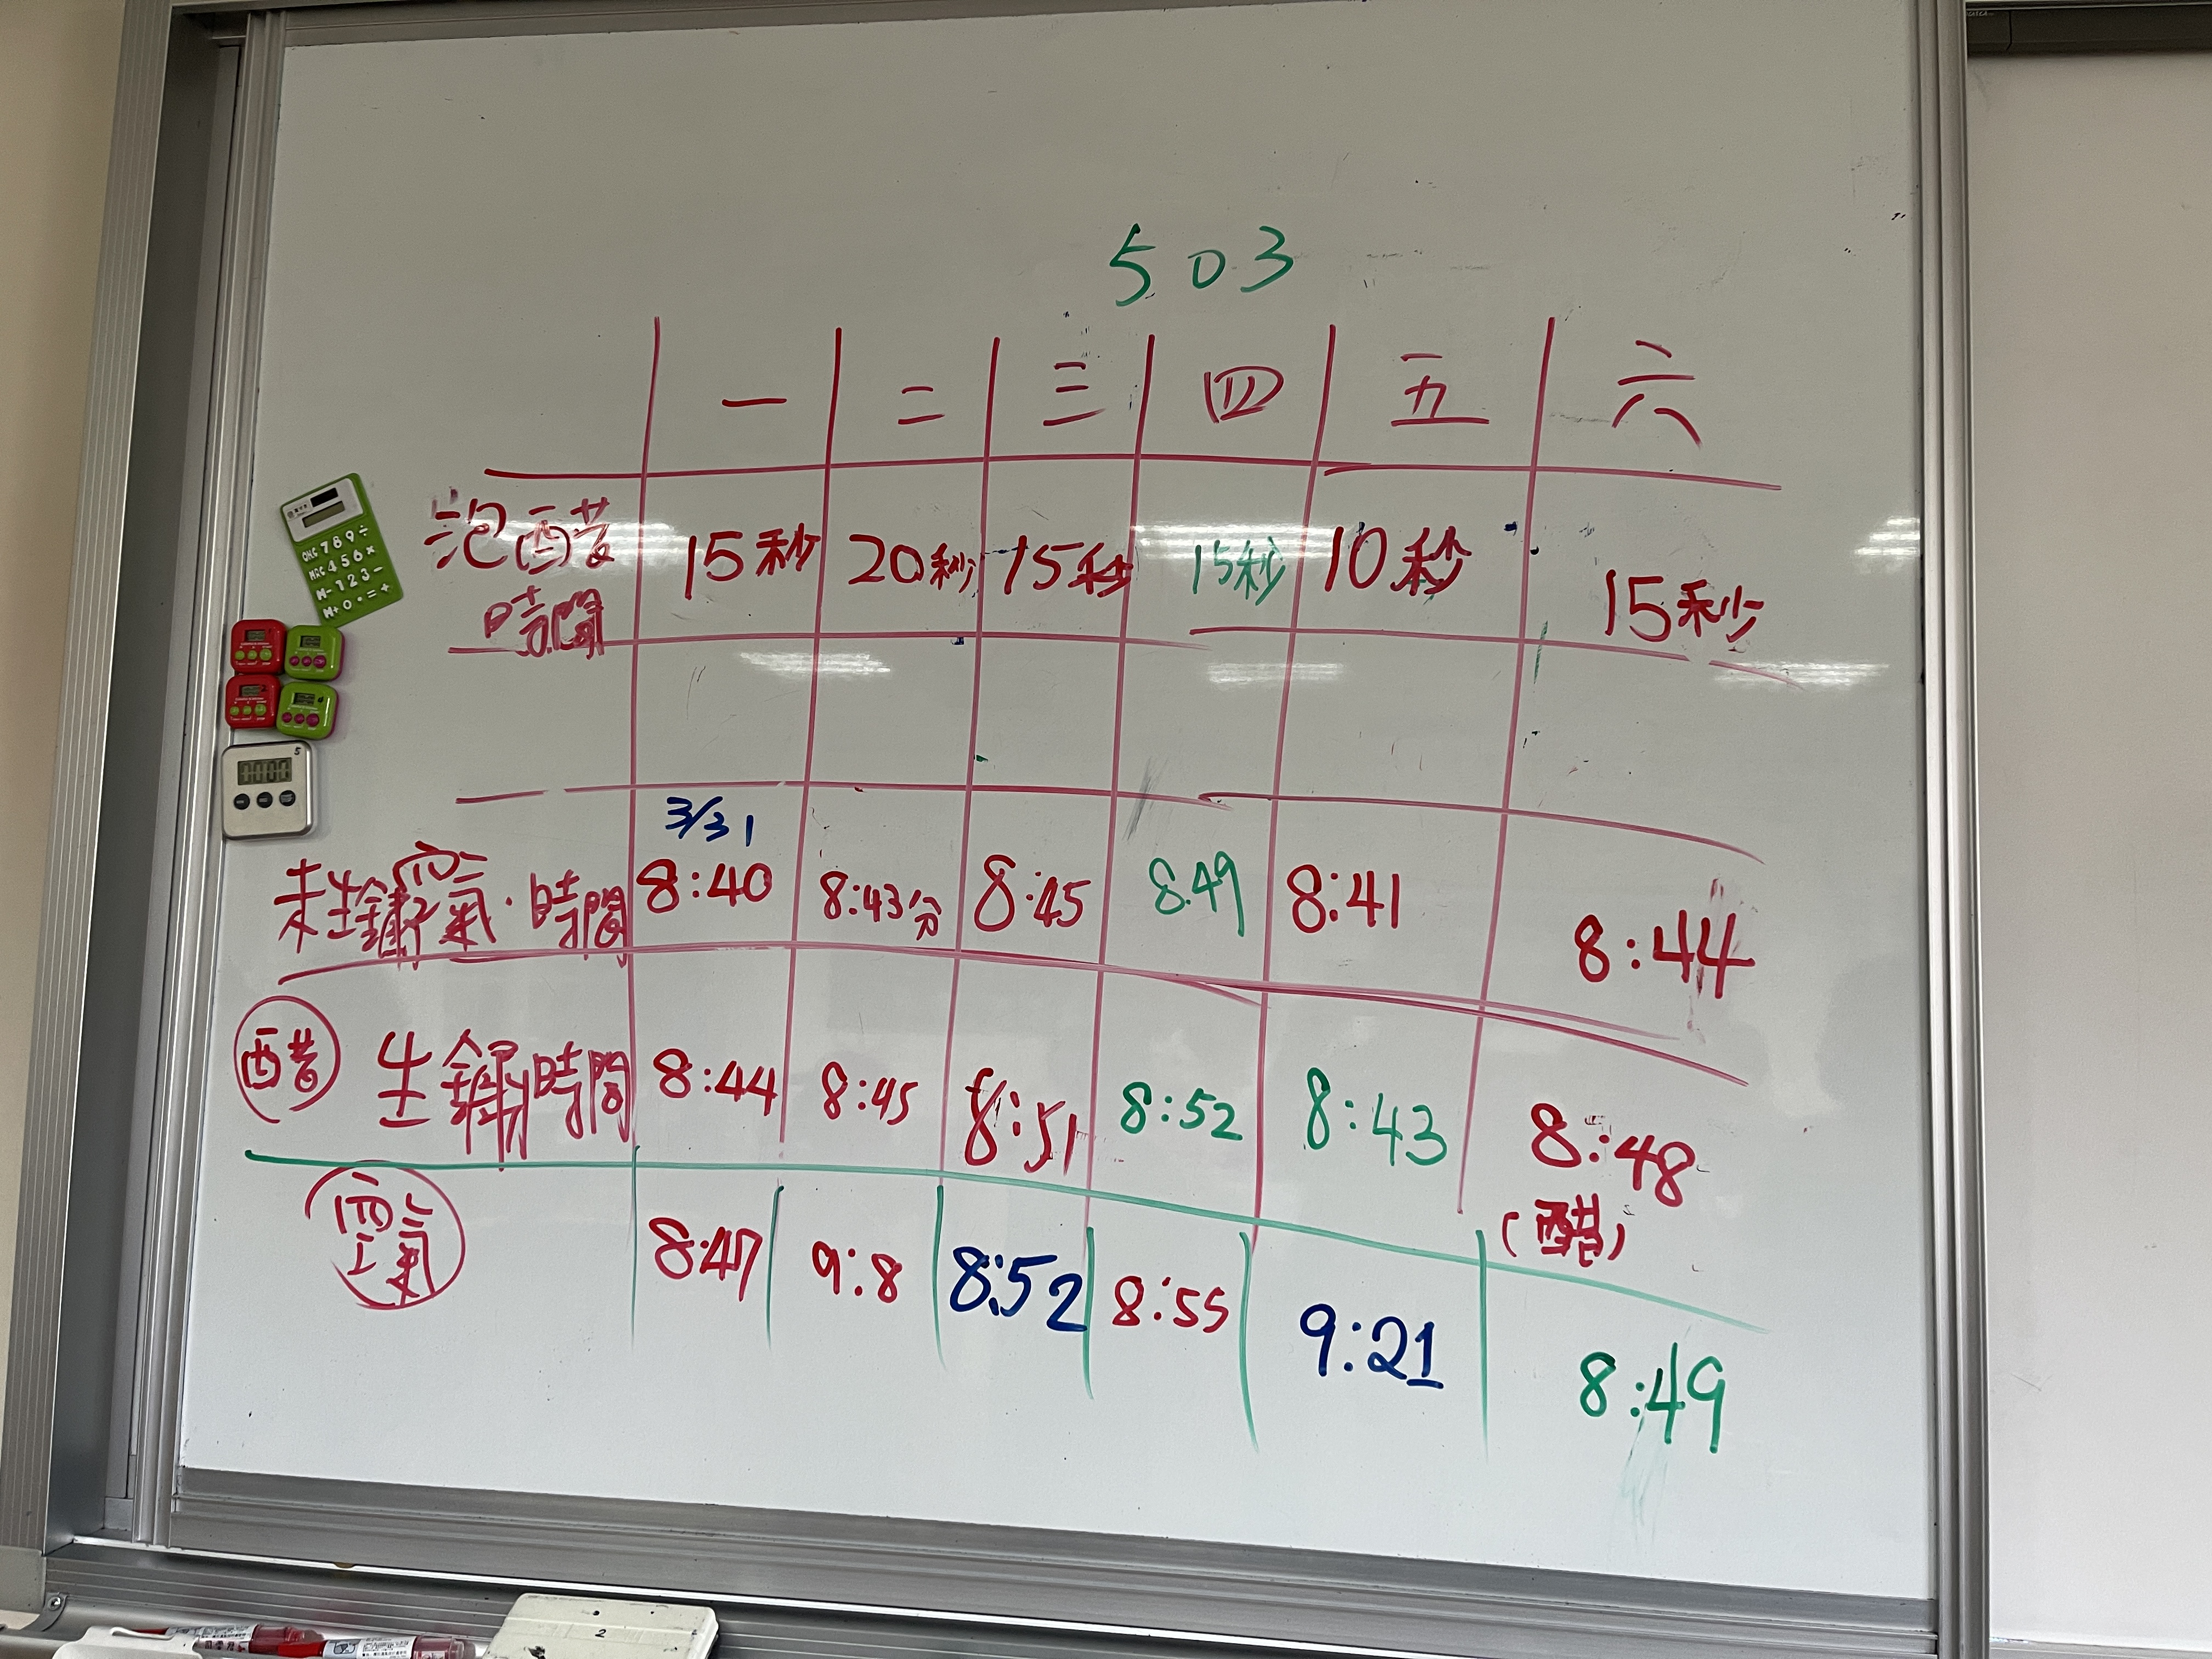 503
一 二 三 四 五 六
泡醋時間 15秒 20秒 15秒 15秒 10秒 15秒
3/31
未生鏽空氣·時間 8:40 8:43分 8:45 8:49 8:41 8:44
醋 生鏽時間 8:44 8:45 8:51 8:52 8:43 8:48
(醋)
空氣 8:47 9:8 8:52 8:55 9:21 8:49